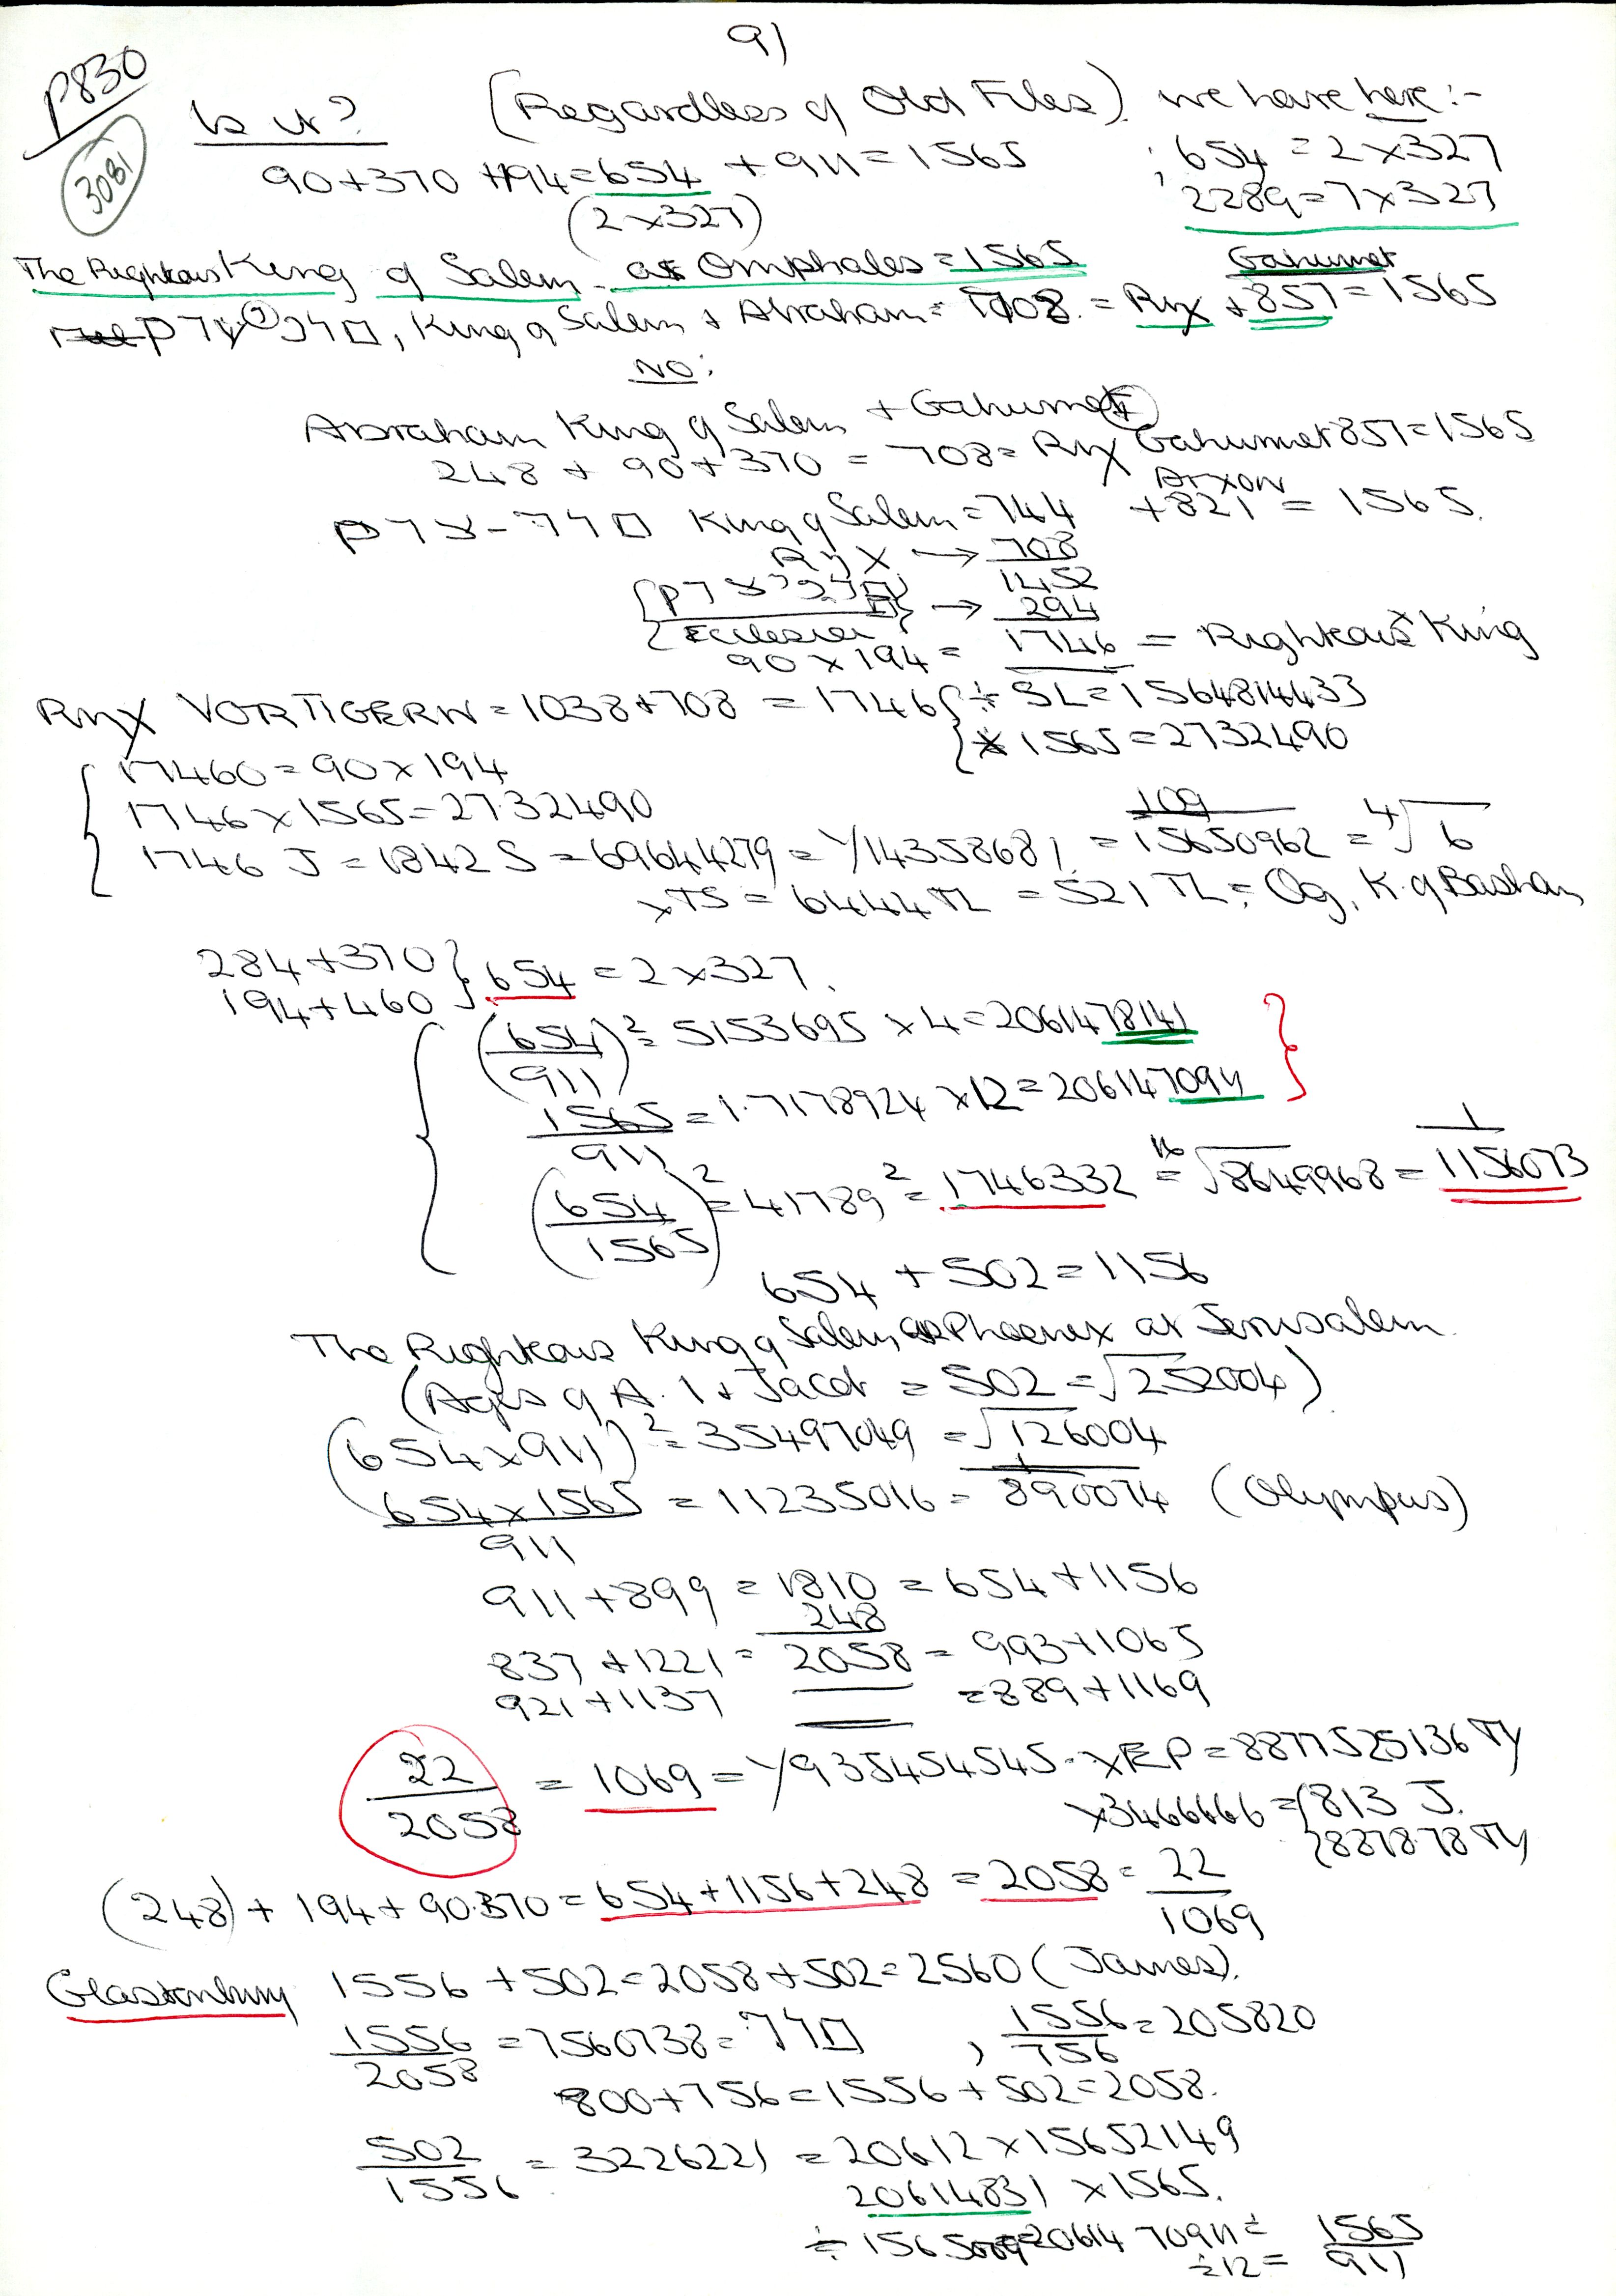 91
P830
3081
Is it? (Regardless of Old Files). we have here:-
90+370+194=654 + 911=1565 ; 654=2×327
(2×327) 2289=7×327
The Righteous King of Salem - as Omphalos = 1565 Gahumet
King of Salem + Abraham = 708. = Rex + 857 = 1565
NO:
Abraham King of Salem + Gahumet
248 + 90+370 = 708 = Rex Gahumet 857=1565
King of Salem=744 Arxon +821 = 1565.
→ 708
1452
→ 294
Ecclesia
90×194= 1746 = Righteous King
VORTIGERN=1038+708 = 1746 { ÷ SL=1564814433
× 1565=2732490
17460=90×194
1746×1565=2732490
1746 J=1842 S=69644279=1/14358681 = 109/15650962 = ⁴√6
×TS = 6444TL = 521 TL = Og, K. of Bashan
284+370
194+460 } 654 = 2×327.
(654/911)² = 5153695 ×4=2061478141
1565/911 = 1.7178924 ×12=2061470911
(654/1565)² = 41789² = 1746332 = ¹⁶√8649968 = 1/1156073
654 + 502=1156
The Righteous King of Salem, as Phoenix at Jerusalem.
(Ages of A. I + Jacob = 502 = √252004)
(654×911)² = 35497049 = √126004
654×1565/911 = 11235016 = 1/890074 (Olympus)
911+899 = 1810 = 654+1156
248
837+1221 = 2058 = 993+1065
921+1137 =889+1169
22/2058 = 1069 = 1/935454545. ×EP=8877525136 TY
×3466666={813 J.
887878 TY
(248)+194+90.370=654+1156+248 = 2058 = 22/1069
Glastonbury 1556 +502=2058+502=2560 (James).
1556/2058 = 7560738= , 1556/756 = 205820
800+756=1556+502=2058.
502/1556 = 3226221 = 20612×15652149
20614831 ×1565.
2061470911 ÷
÷12= 1565/911